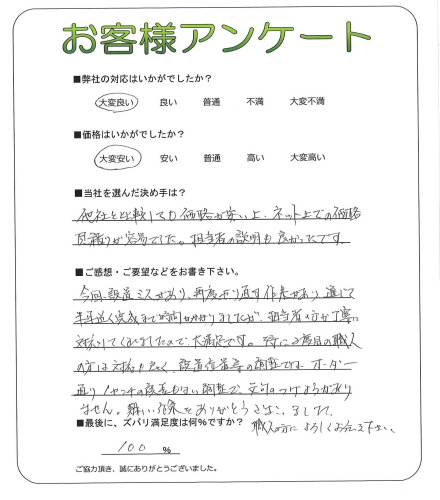 お客様アンケート
■弊社の対応はいかがでしたか？
大変良い 良い 普通 不満 大変不満
■価格はいかがでしたか？
大変安い 安い 普通 高い 大変高い
■当社を選んだ決め手は？
他社と比較しても価格が安い上、ネット上での価格
見積りが容易でした。担当者の説明も良かったです。
■ご感想・ご要望などをお書き下さい。
今回、製造ミスがあり、再度やり直す作業があり、通じて
半年近く完成まで時間がかかりましたが、担当者の方が丁寧に
対応してくれましたので、大満足です。特に2度目の職人
の方は対応も良く、の調整ですオーダー
通り1センチの誤差もない調整で、文句のつけようがあり
ません。難しい作業をありがとうございました。
職人の方によろしくお伝え下さい。
■最後に、ズバリ満足度は何％ですか？
100 ％
ご協力頂き、誠にありがとうございました。